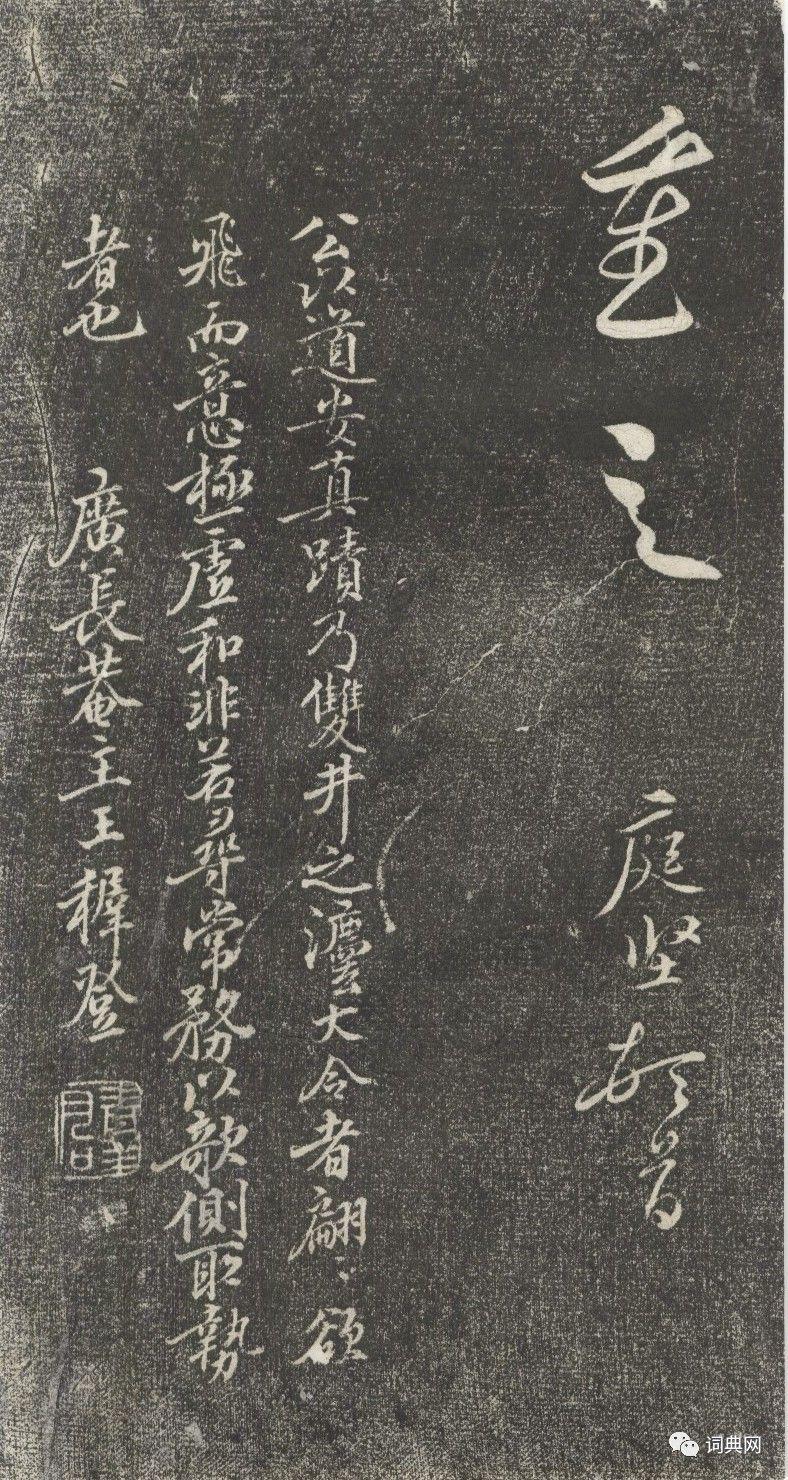 重之　庭坚頓首
公此道安真蹟乃雙井之灋大令者翩〻欲
飛而意極虛和非若尋常務以欹側取勢
者也　廣長菴主王穉登
词典网